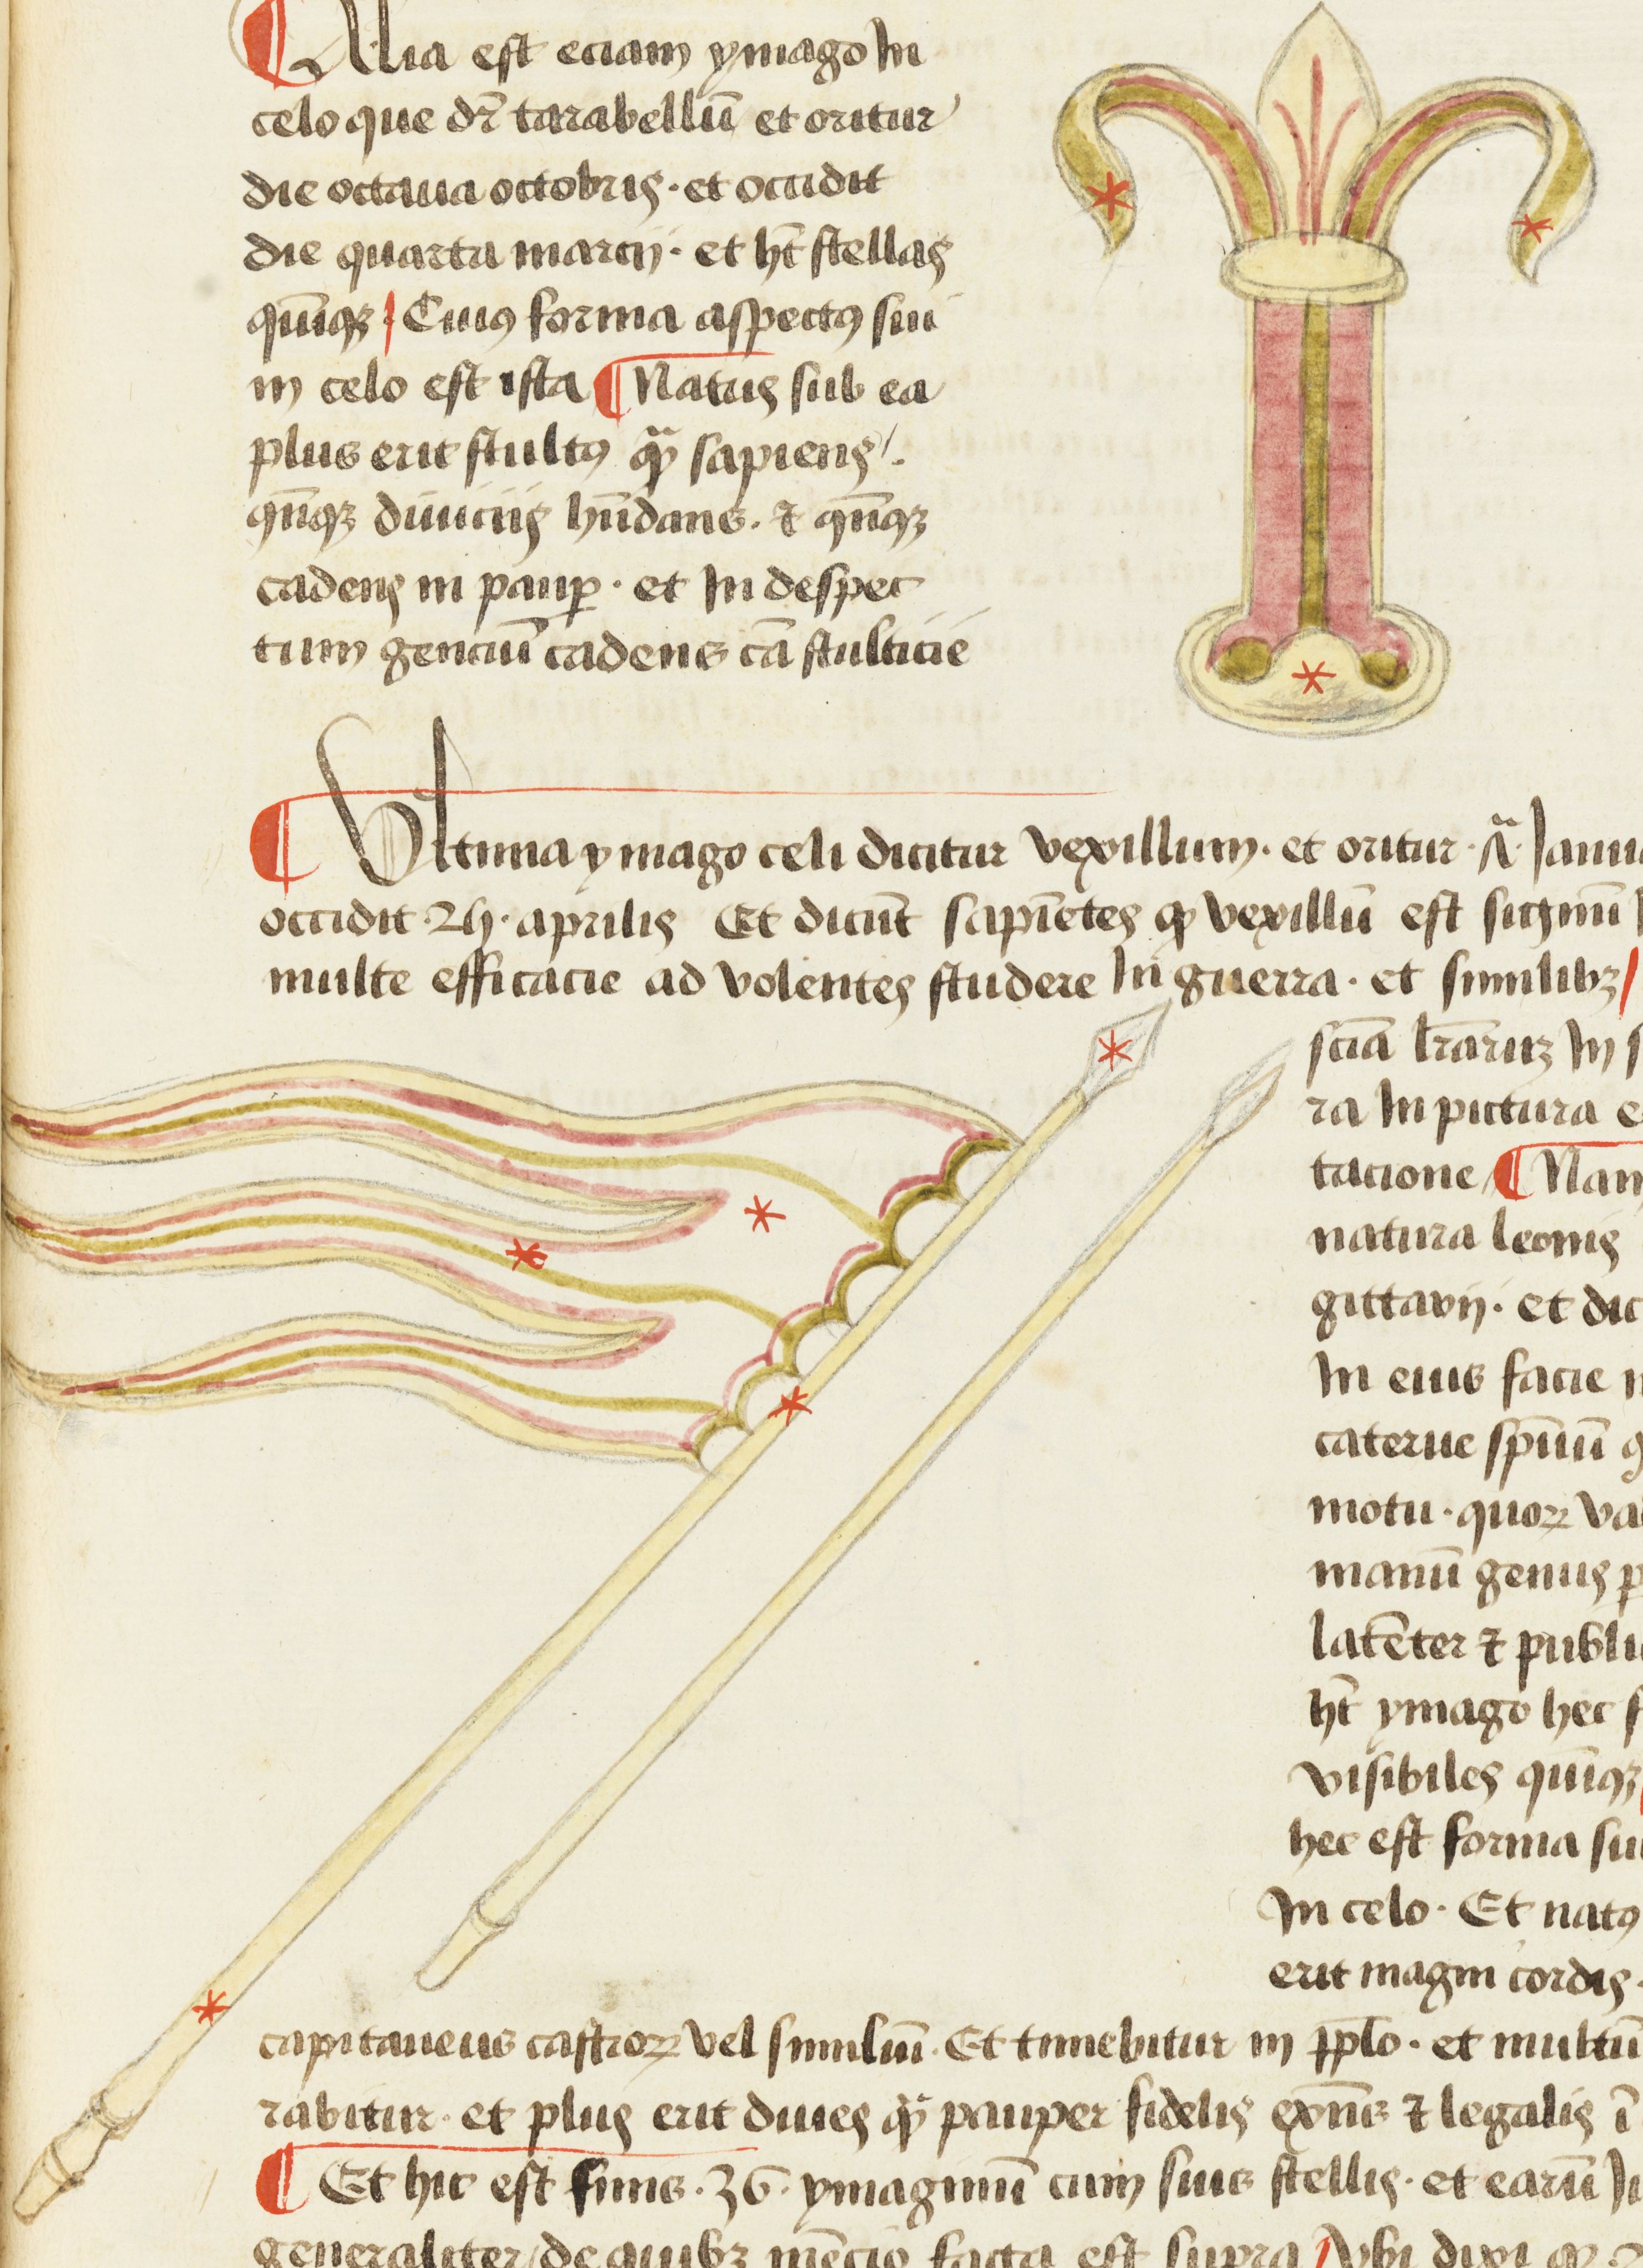 Alia est eciam ymago In
celo que dr̄ tarabellū et oritur
die octaua octobris · et occidit
die quarta marcij · et hт̄ stellas
quīqꝫ Cuiꝰ forma aspectꝰ sui
in celo est ista ¶ Natus sub ea
plus erit stultꝰ qᷓ sapiens .
qn̄qꝫ diuicijs hūdans . ⁊ qn̄qꝫ
cadens in paup̱ · et In despec
tum genciū cadens cā stulticie
¶ Vltima ymago celi dicitur vexillum · et oritur · 4ᷓ · Janua
occidit · 24 · aprilis Et dicūt sapiētes ꝙ vexillū est signū
multe efficacie ad volentes studere In guerra · et similibꝫ
sciā lr̄arūꝫ In s
ra In pictura e
tacione ¶ Nam
natura leonis
gittarij · et dic
In eius facie
caterue spm̄ū
motu · quoꝝ va
manū genus p
latēter ⁊ publi
hт̄ ymago hec s
visibiles quīqꝫ
hec est forma su
In celo · Et natꝰ
erit magni cordis ·
capitaneus castroꝝ vel similiū · Et timebitur in pp̄lo · et multū
rabitur · et plus erit diues qᷓ pauper fidelis exn̄s ⁊ legalis ī
¶ Et hic est finis · 36 · ymaginū cum suis stellis · et earū
generaliter de quibꝫ mēcio facta est supra Vbi dixi ꝙ